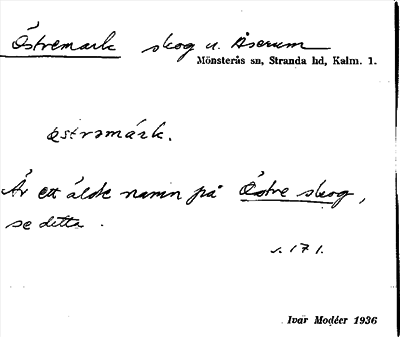 Östremark skog u. Åserum
Mönsterås sn, Stranda hd, Kalm. l.
östrəmárk.
Är ett äldre namn på Östre skog,
se detta.
s. 171.
Ivar Modéer 1936